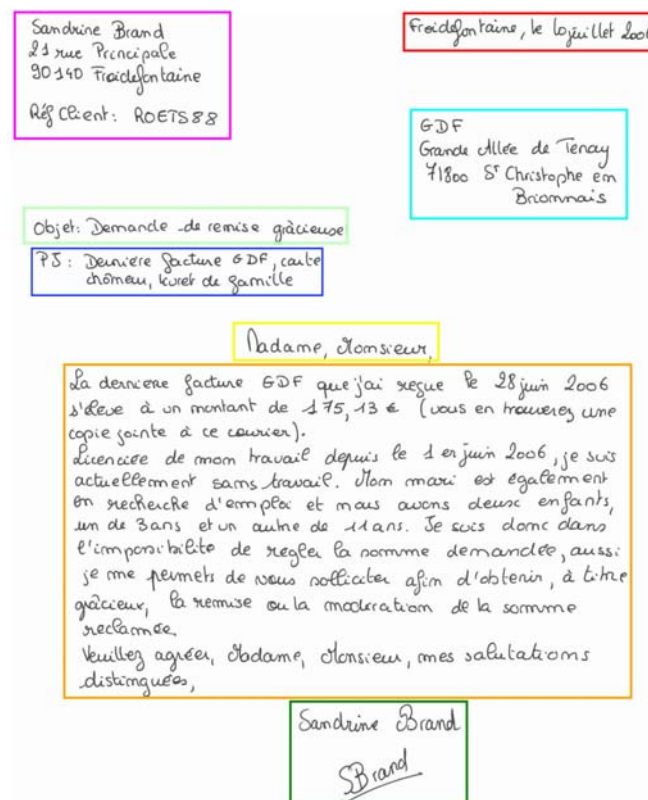 Sandrine Brand
21 rue Principale
90140 Froidefontaine
Réf Client: ROETS88
Froidefontaine, le 10 juillet 2006
GDF
Grande Allée de Tenay
71800 St Christophe en
Brionnais
Objet: Demande de remise grâcieuse
PJ: Dernière facture GDF, carte
chômeur, livret de famille
Madame, Monsieur,
La dernière facture GDF que j'ai reçue le 28 juin 2006
s'élève à un montant de 175,13 € (vous en trouverez une
copie jointe à ce courier).
Licenciée de mon travail depuis le 1er juin 2006, je suis
actuellement sans travail. Mon mari est également
en recherche d'emploi et nous avons deux enfants,
un de 3 ans et un autre de 11 ans. Je suis donc dans
l'impossibilité de régler la somme demandée, aussi
je me permets de vous solliciter afin d'obtenir, à titre
grâcieux, la remise ou la modération de la somme
réclamée.
Veuillez agréer, Madame, Monsieur, mes salutations
distinguées,
Sandrine Brand
SBrand